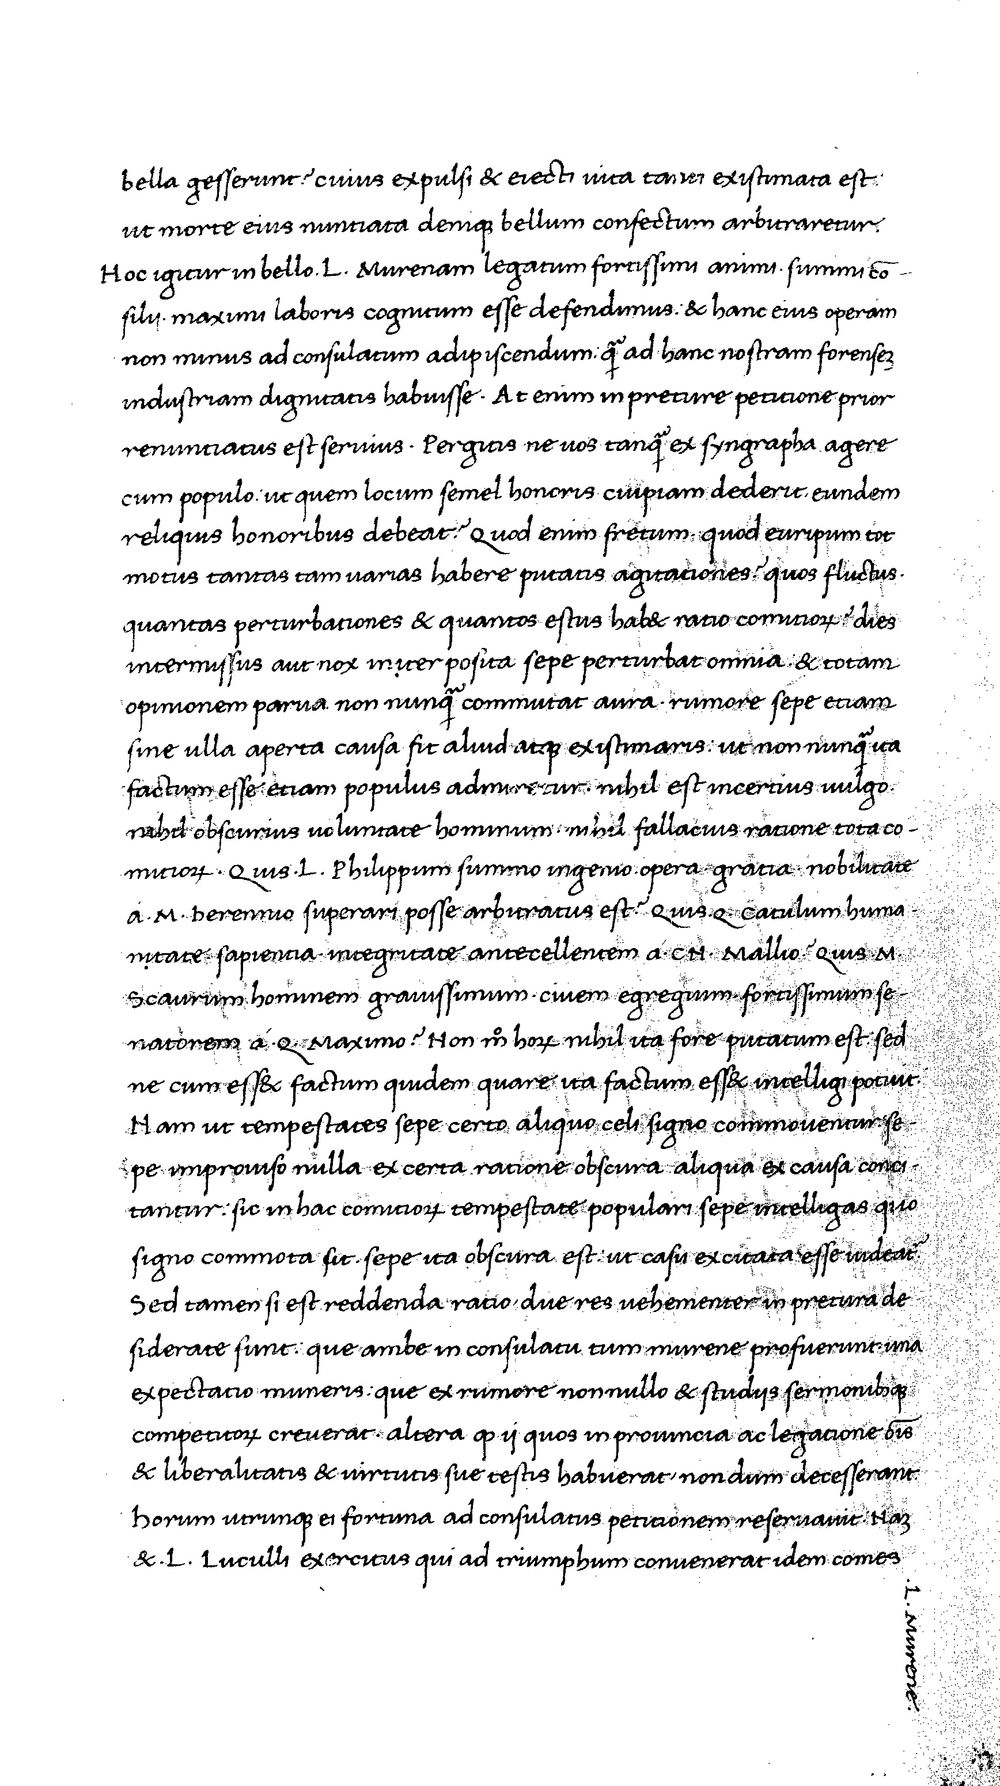 bella gesserunt? cuius expulsi & eiecti uita tanti existimata est:
ut morte eius nuntiata deniq; bellum confectum arbitraretur.
Hoc igitur in bello. L. Murenam legatum fortissimi animi. summi cō-
silii. maximi laboris cognitum esse defendimus: & hanc eius operam
non minus ad consulatum adipiscendum: q̃ ad hanc nostram forenseꝫ
industriam dignitatis habuisse. At enim in preture petitione prior
renuntiatus est seruius. Pergitis ne uos tanq̃ ex syngrapha agere
cum populo: ut quem locum semel honoris cuipiam dederit. eundem
reliquis honoribus debeat? Quod enim fretum. quod euripum tot
motus tantas tam uarias habere putatis agitationes? quos fluctus.
quantas perturbationes & quantos estus hab& ratio comitioꝝ? dies
intermissus aut nox interposita sepe perturbat omnia. & totam
opinionem parua non nunq̃ commutat aura. rumore sepe etiam
sine ulla aperta causa fit aliud atq; existimaris: ut non nunq̃ ita
factum esse etiam populus admiretur. nihil est incertius uulgo.
nihil obscurius uoluntate hominum. nihil fallacius ratione tota co-
mitioꝝ. Quis. L. Philippum summo ingenio. opera. gratia. nobilitate
a. M. herennio superari posse arbitratus est? Quis. Q. Catulum huma-
nitate. sapientia. integritate antecellentem a. CN. Mallio? Quis. M.
Scaurum hominem grauissimum. ciuem egregium. fortissimum se-
natorem a. Q. Maximo? Non m̊ hoꝝ nihil ita fore putatum est. sed
ne cum ess& factum quidem quare ita factum ess& intelligi potuit.
Nam ut tempestates sepe certo aliquo celi signo commouentur. se-
pe improuiso nulla ex certa ratione obscura aliqua ex causa conci-
tantur: sic in hac comitioꝝ tempestate populari sepe intelligas quo
signo commota sit. sepe ita obscura est: ut casu excitata esse uideat᷑
Sed tamen si est reddenda ratio. due res uehementer in pretura de
siderate sunt: que ambe in consulatu tum murene profuerunt. una
expectatio muneris: que ex rumore nonnullo & studiis sermonibq;
competitoꝝ creuerat. altera ꝙ ij quos in prouincia ac legatione oīs
& liberalitatis & uirtutis sue testis habuerat. nondum decesserant.
horum utrunq; ei fortuna ad consulatus petitionem reseruauit. Naꝫ
&. L. Luculli exercitus qui ad triumphum conuenerat idem comes
.L. Murene.